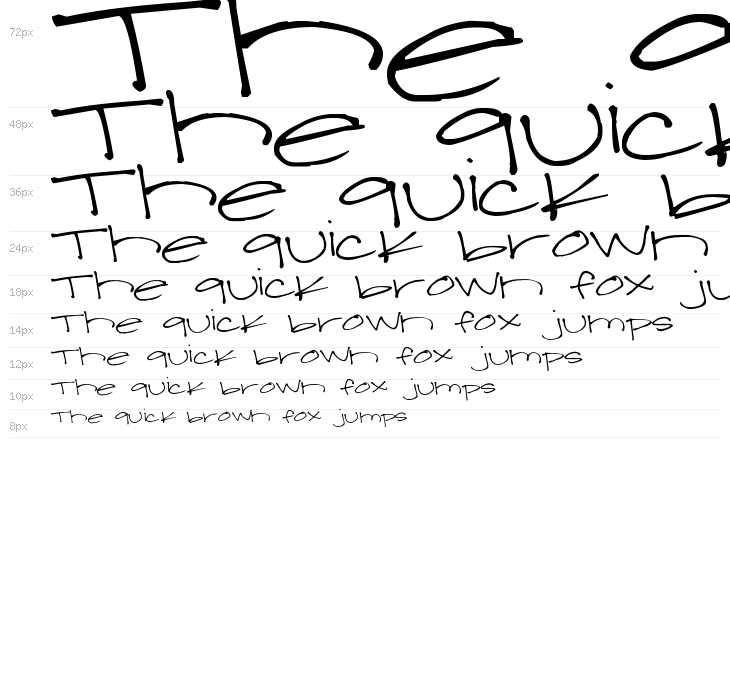 72px The q
48px The quick
36px The quick b
24px The quick brown
18px The quick brown fox ju
14px The quick brown fox jumps
12px The quick brown fox jumps
10px The quick brown fox jumps
8px The quick brown fox jumps